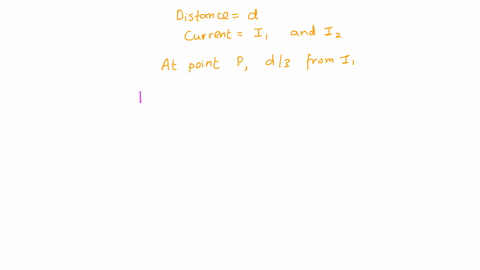 Distance = d
Current = I₁ and I₂
At point P, d/3 from I₁